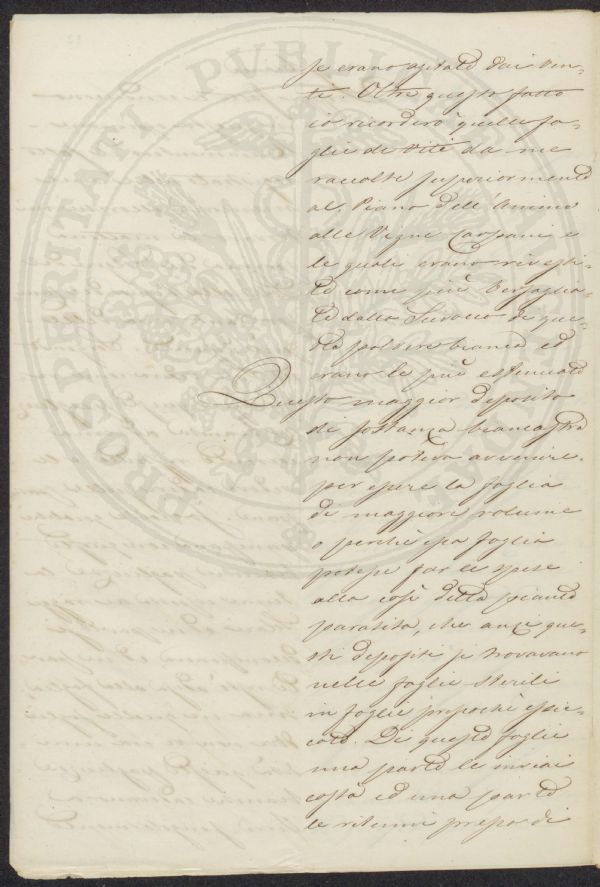 se erano agitate dai ven-
ti. Oltre questo fatto
io ricorderò quelle fo-
glie di viti da me
raccolte superiormente
al Piano dell'
alle Vigne e
le quali erano rivesti-
te come più bersaglia-
te dallo Scirocco di que-
sta polvere bianca ed
erano le più estenuate
Questo maggior deposito
di sostanza biancastra
non poteva avvenire
per essere la foglia
di maggiore volume
o perchè essa foglia
potesse far le spese
alla così detta pianta
parasita, che anzi que-
sti depositi si trovavano
nelle foglie sterili
in foglie pressochè essic-
cate. Di queste foglie
una parte le inviai
costà ed una parte
le ritenni presso di
PROSPERITATI PVBLICAE AVGENDAE